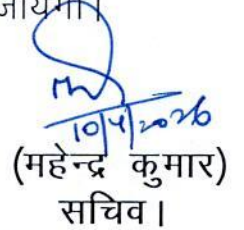 जायेगा।
10/4/2026
(महेन्द्र कुमार)
सचिव।